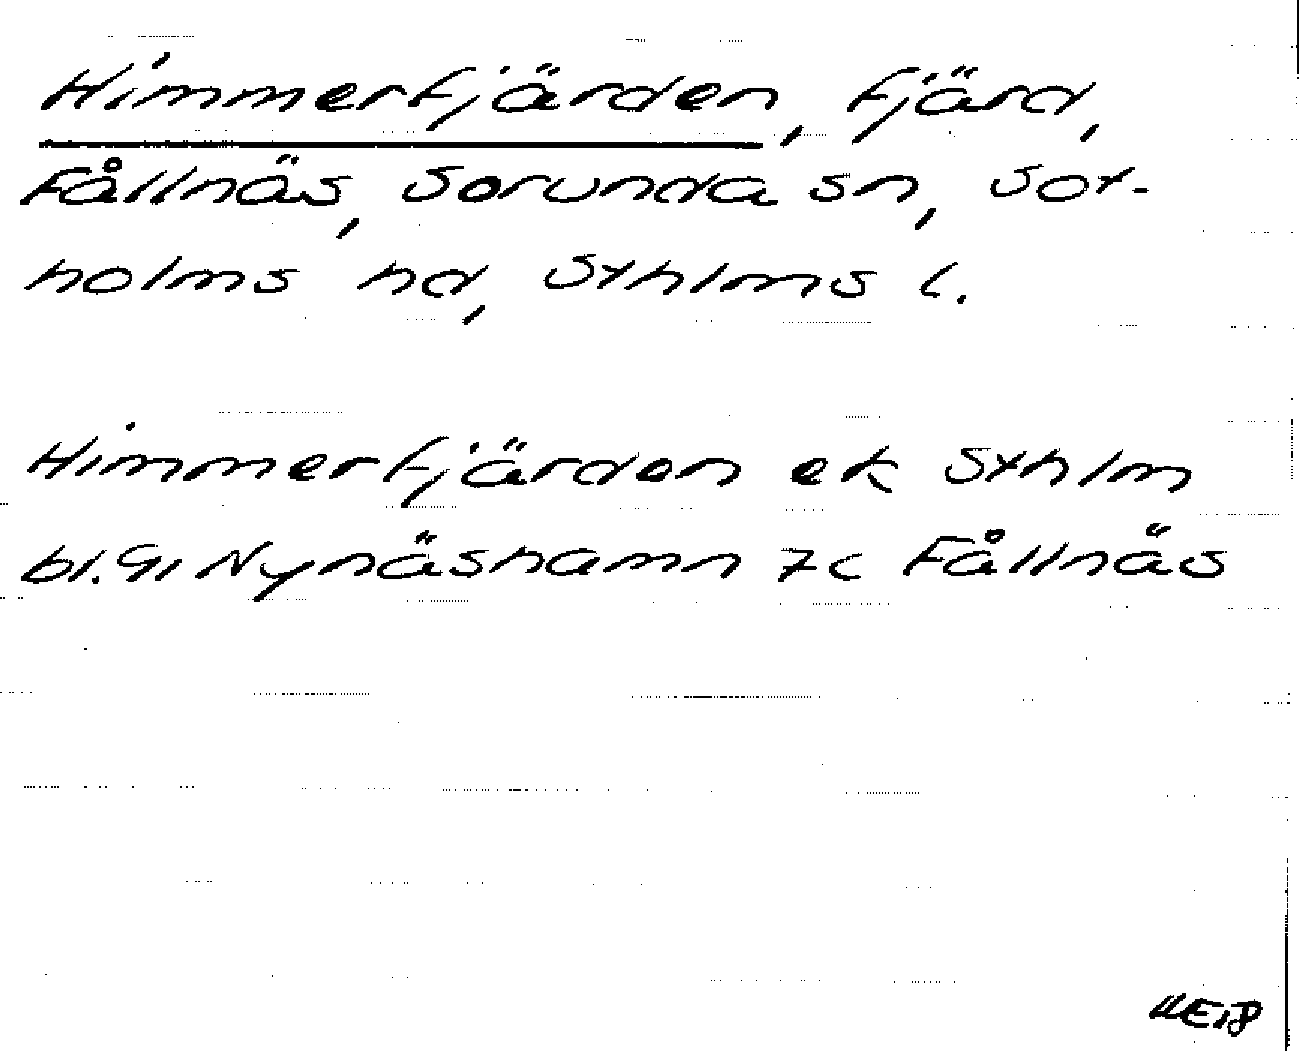 Himmerfjärden, fjärd,
Fållnäs, Sorunda sn, Sot-
holms hd, Sthlms l.
Himmerfjärden ek Sthlm
bl. 91 Nynäshamn 7c Fållnäs